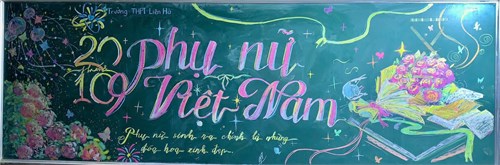 Trường THPT Liên Hà
20
tháng
10
phụ nữ
Việt Nam
Phụ nữ sinh ra chính là những
đóa hoa xinh đẹp.